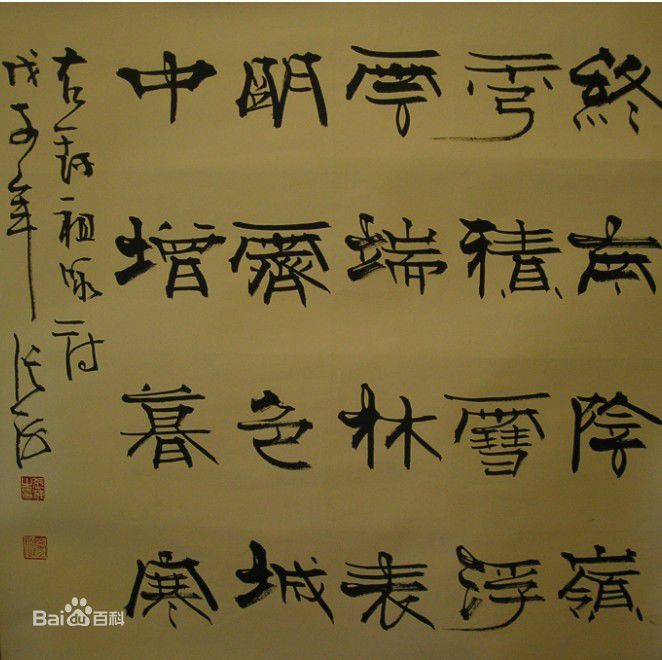 終南陰嶺
秀積雪浮
雲端林表
明霽色城
中增暮寒
祖詠詩
戊子年
Bai百科